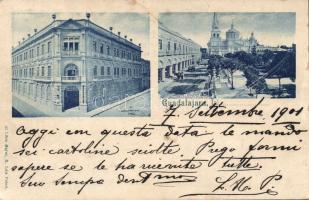 Guadalajara.
7. Settembre 1901
Oggi con questa data le mando
sei cartoline sciolte Prego farmi
sapere se le ha ricevute tutte.
Suo sempre devmo
L. M. P.